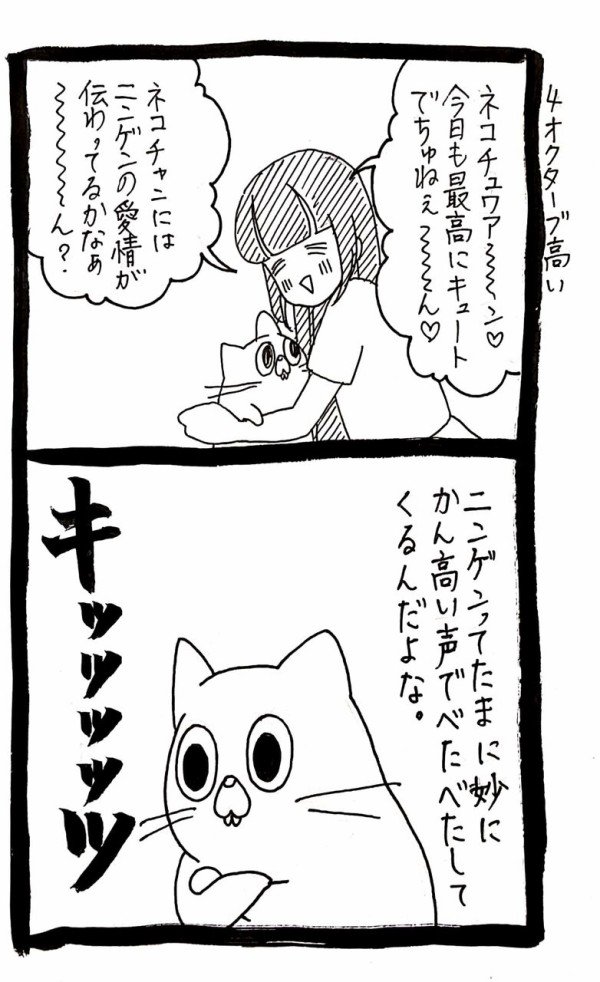 4オクターブ高い
ネコチュウァ〜〜〜ン♡
今日も最高にキュート
でちゅねぇ〜〜〜ん♡
ネコチャンには
ニンゲンの愛情が
伝わってるかなぁ
〜〜〜〜〜ん?
ニンゲンってたまに妙に
かん高い声でべたべたして
くるんだよな。
キッッッッッツ